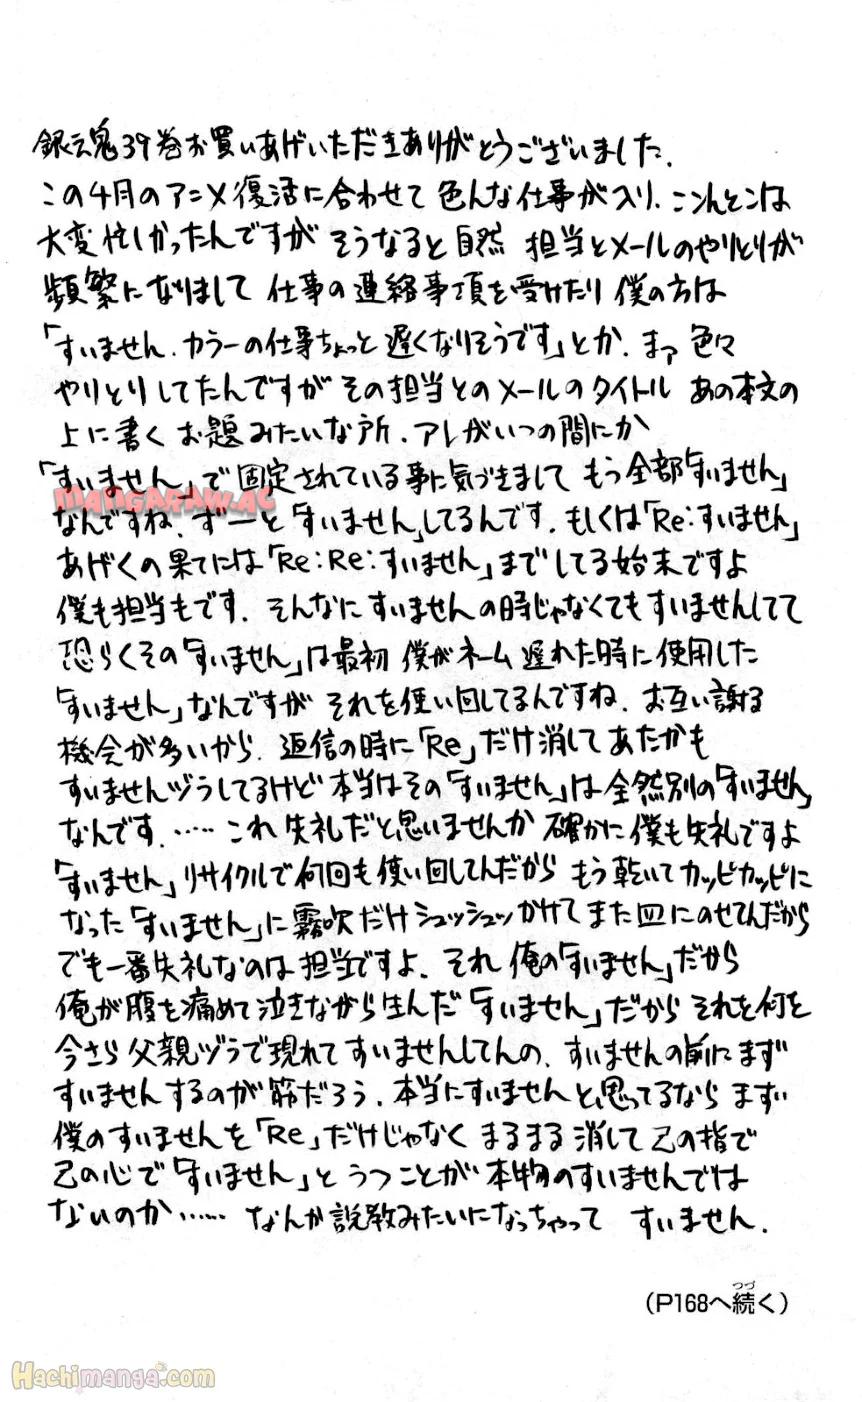 銀魂39巻お買いあげいただきありがとうございました.
この4月のアニメ復活に合わせて 色んな仕事が入り.ここんとこは
大変忙しかったんですが そうなると自然 担当とメールのやりとりが
頻繁になりまして 仕事の連絡事項を受けたり 僕の方は
「すいません.カラーの仕事ちょっと遅くなりそうです」とか.まァ色々
やりとりしてたんですが その担当とのメールのタイトル あの本文の
上に書く お題みたいな所.アレがいつの間にか
「すいません」で固定されている事に気づきまして もう全部「すいません」
MANGARAW.AC
なんですね.ずーっと「すいません」してるんです.もしくは「Re:すいません」
あげくの果てには「Re:Re:すいません」までしてる始末ですよ
僕も担当もです.そんなにすいませんの時じゃなくてもすいませんしてて
恐らくその「すいません」は最初 僕がネーム遅れた時に使用した
「すいません」なんですが それを使い回してるんですね.お互い謝る
機会が多いから.返信の時に「Re」だけ消してあたかも
すいませんヅラしてるけど本当はその「すいません」は全然別の「すいません」
なんです.……これ失礼だと思いませんか 確かに僕も失礼ですよ
「すいません」リサイクルで何回も使い回してんだから もう乾いてカッピカッピに
なった「すいません」に霧吹だけシュッシュッかけてまた皿にのせてんだから
でも一番失礼なのは担当ですよ.それ俺の「すいません」だから
俺が腹を痛めて泣きながら生んだ「すいません」だから それを何を
今さら父親ヅラで現れてすいませんしてんの.すいませんの前にまず
すいませんするのが筋だろう.本当にすいませんと思ってるなら まず
僕のすいませんを「Re」だけじゃなく まるまる消して己の指で
己の心で「すいません」とうつことが 本物のすいませんでは
ないのか…… なんか説教みたいになっちゃって すいません.
(P168へ続く)
つづ
Hachimanga.com